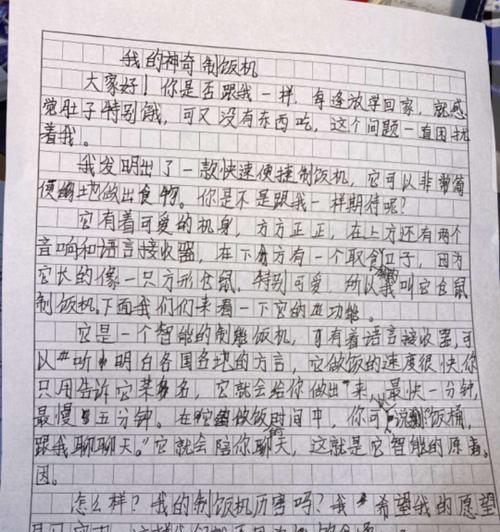 我的神奇制饭机
大家好!你是否跟我一样,每逢放学回家,就感
觉肚子特别饿,可又没有东西吃,这个问题一直困扰
着我。
我发明出了一款快速便捷制饭机,它可以非常简
便地做出食物。你是不是跟我一样期待呢?
它有着可爱的机身,方方正正,在上方还有两个
音响和语言接收器,在下方有一个取食口子,因为
它长的像一只方形仓鼠,特别可爱,所以我叫它仓鼠
制饭机。下面我们们来看一下它的功能。
它是一个智能的制饭机,有着语言接收器,可
以听明白各国各地的方言,它做饭的速度很快你
只用告诉它菜名,它就会给你做出来,最快一分钟,
最慢五分钟。在它做饭时间中,你可说到"饭桶,
跟我聊聊天。"它就会陪你聊天,这就是它智能的原
因。
怎么样?我的制饭机厉害吗?我希望我的愿望